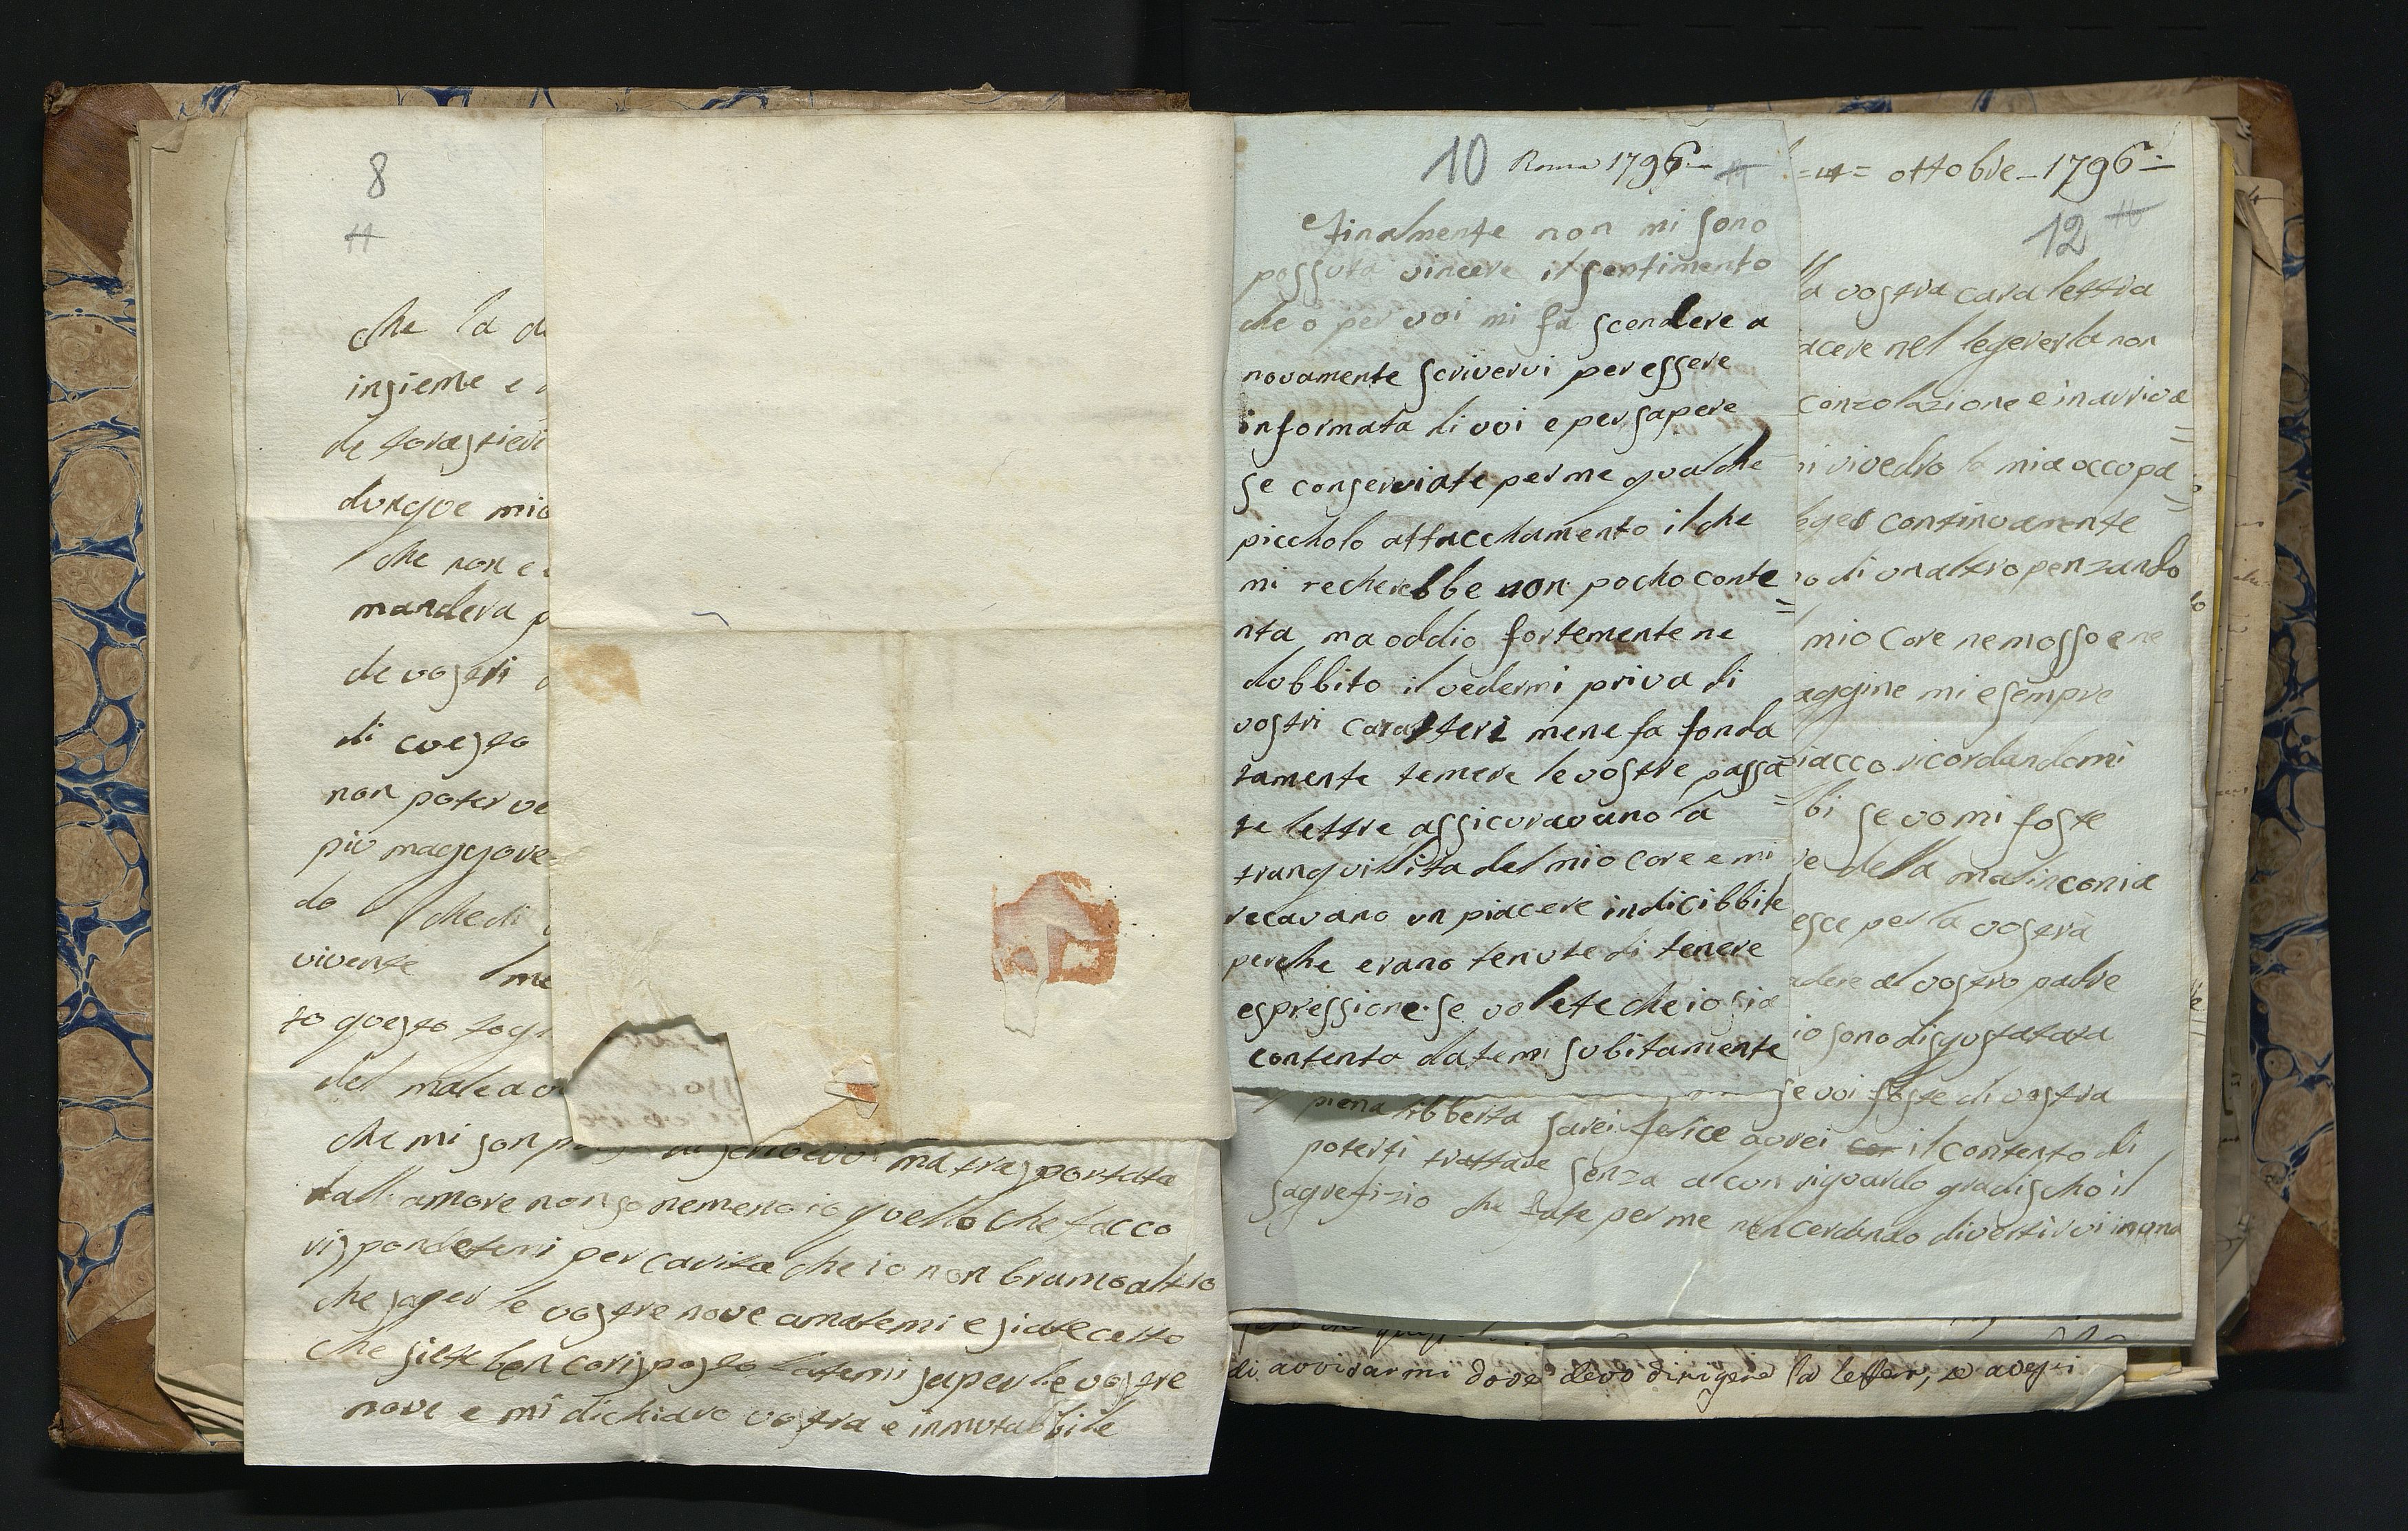 8
che la
insieme e
de forastieri
dunque mio
che non e
mandera p
de vostri
di cuesto
non poter ve
piu maggiore
do che di
vivente me
to questo fog
del male a v
che mi son a scrivervi ma trasportata
dall amore non so nemeno io quello che facco
rispondetemi per carita che io non bramo altro
che saper le vostre nove amatemi e siate certo
che siete ben corisposto datemi saper le vostre
nove e mi dichiaro vostra e inmutabbile
10 Roma 1796
Finalmente non mi sono
possuta vincere il sentimento
che o per voi mi fa scendere a
novamente scrivervi per essere
informata di voi e per sapere
se conserviate per me qualche
piccholo attacchamento il che
mi recherebbe non pocho conte=
nta ma oddio fortemente ne
dubbito il vedermi priva di
vostri caratteri mene fa fonda
tamente temere le vostre passa=
te lettre assicuravano la
tranquillita del mio core e mi
recavano un piacere indicibbile
perche erano tenute di tenere
espressione. se volete che io sia
contenta datemi subitamente
ottobre - 1796
12
la vostra cara lettra
acere nel legererla non
conzolazione e in arriva=
ni rivedro la mia occupa=
continuamente
no di un altro penzando
mio core ne mosso e ne
aggine mi e sempre
piacco ricordandomi
bi se vo mi foste
re della malinconia
esce per la vostra
adere al vostro padre
io sono disgustatata
se voi foste di vostra
piena libberta sarei felice avrei cor il contento di
poterti trattare senza alcun riguardo gradischo il
sagrefizio che fate per me non cercando divertirvi in
di avvisarmi dove devo dirigere la letter, e avessi